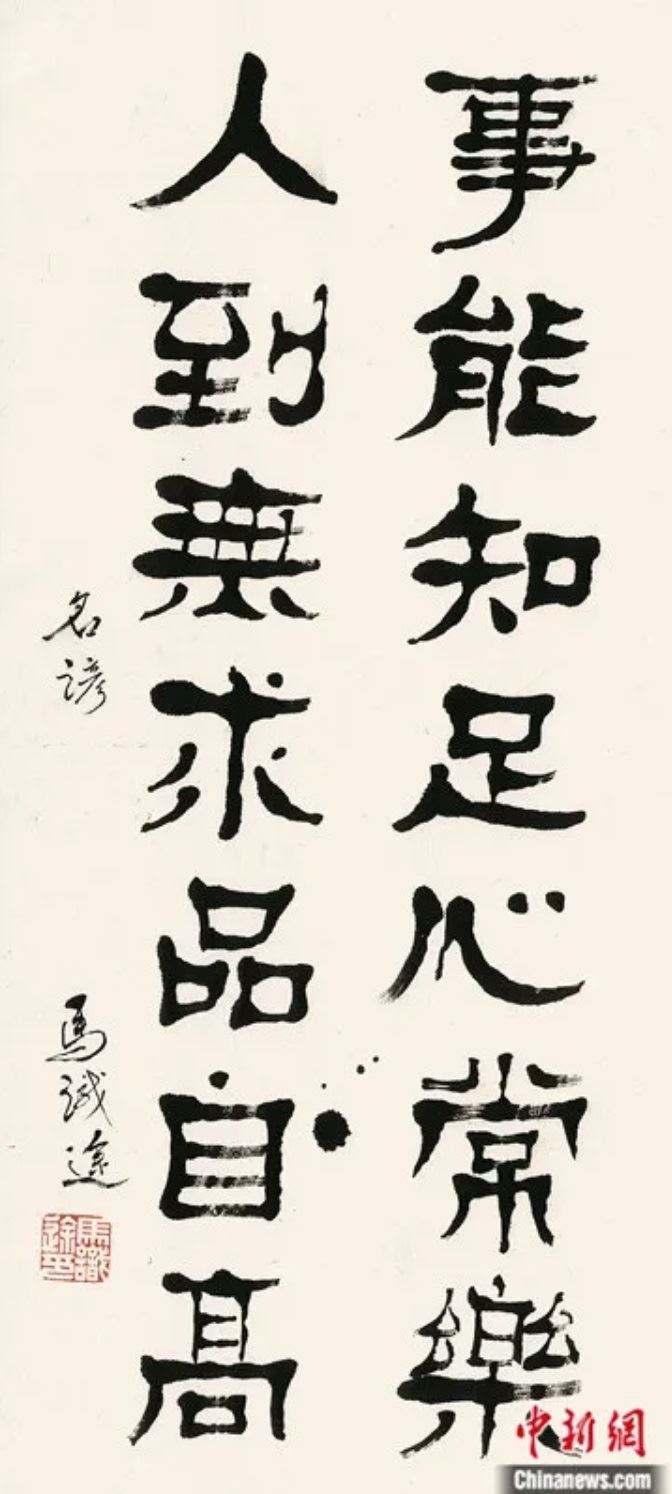 事能知足心常樂
人到無求品自高
名諺
馬識途
馬識途印
中新網
Chinanews.com